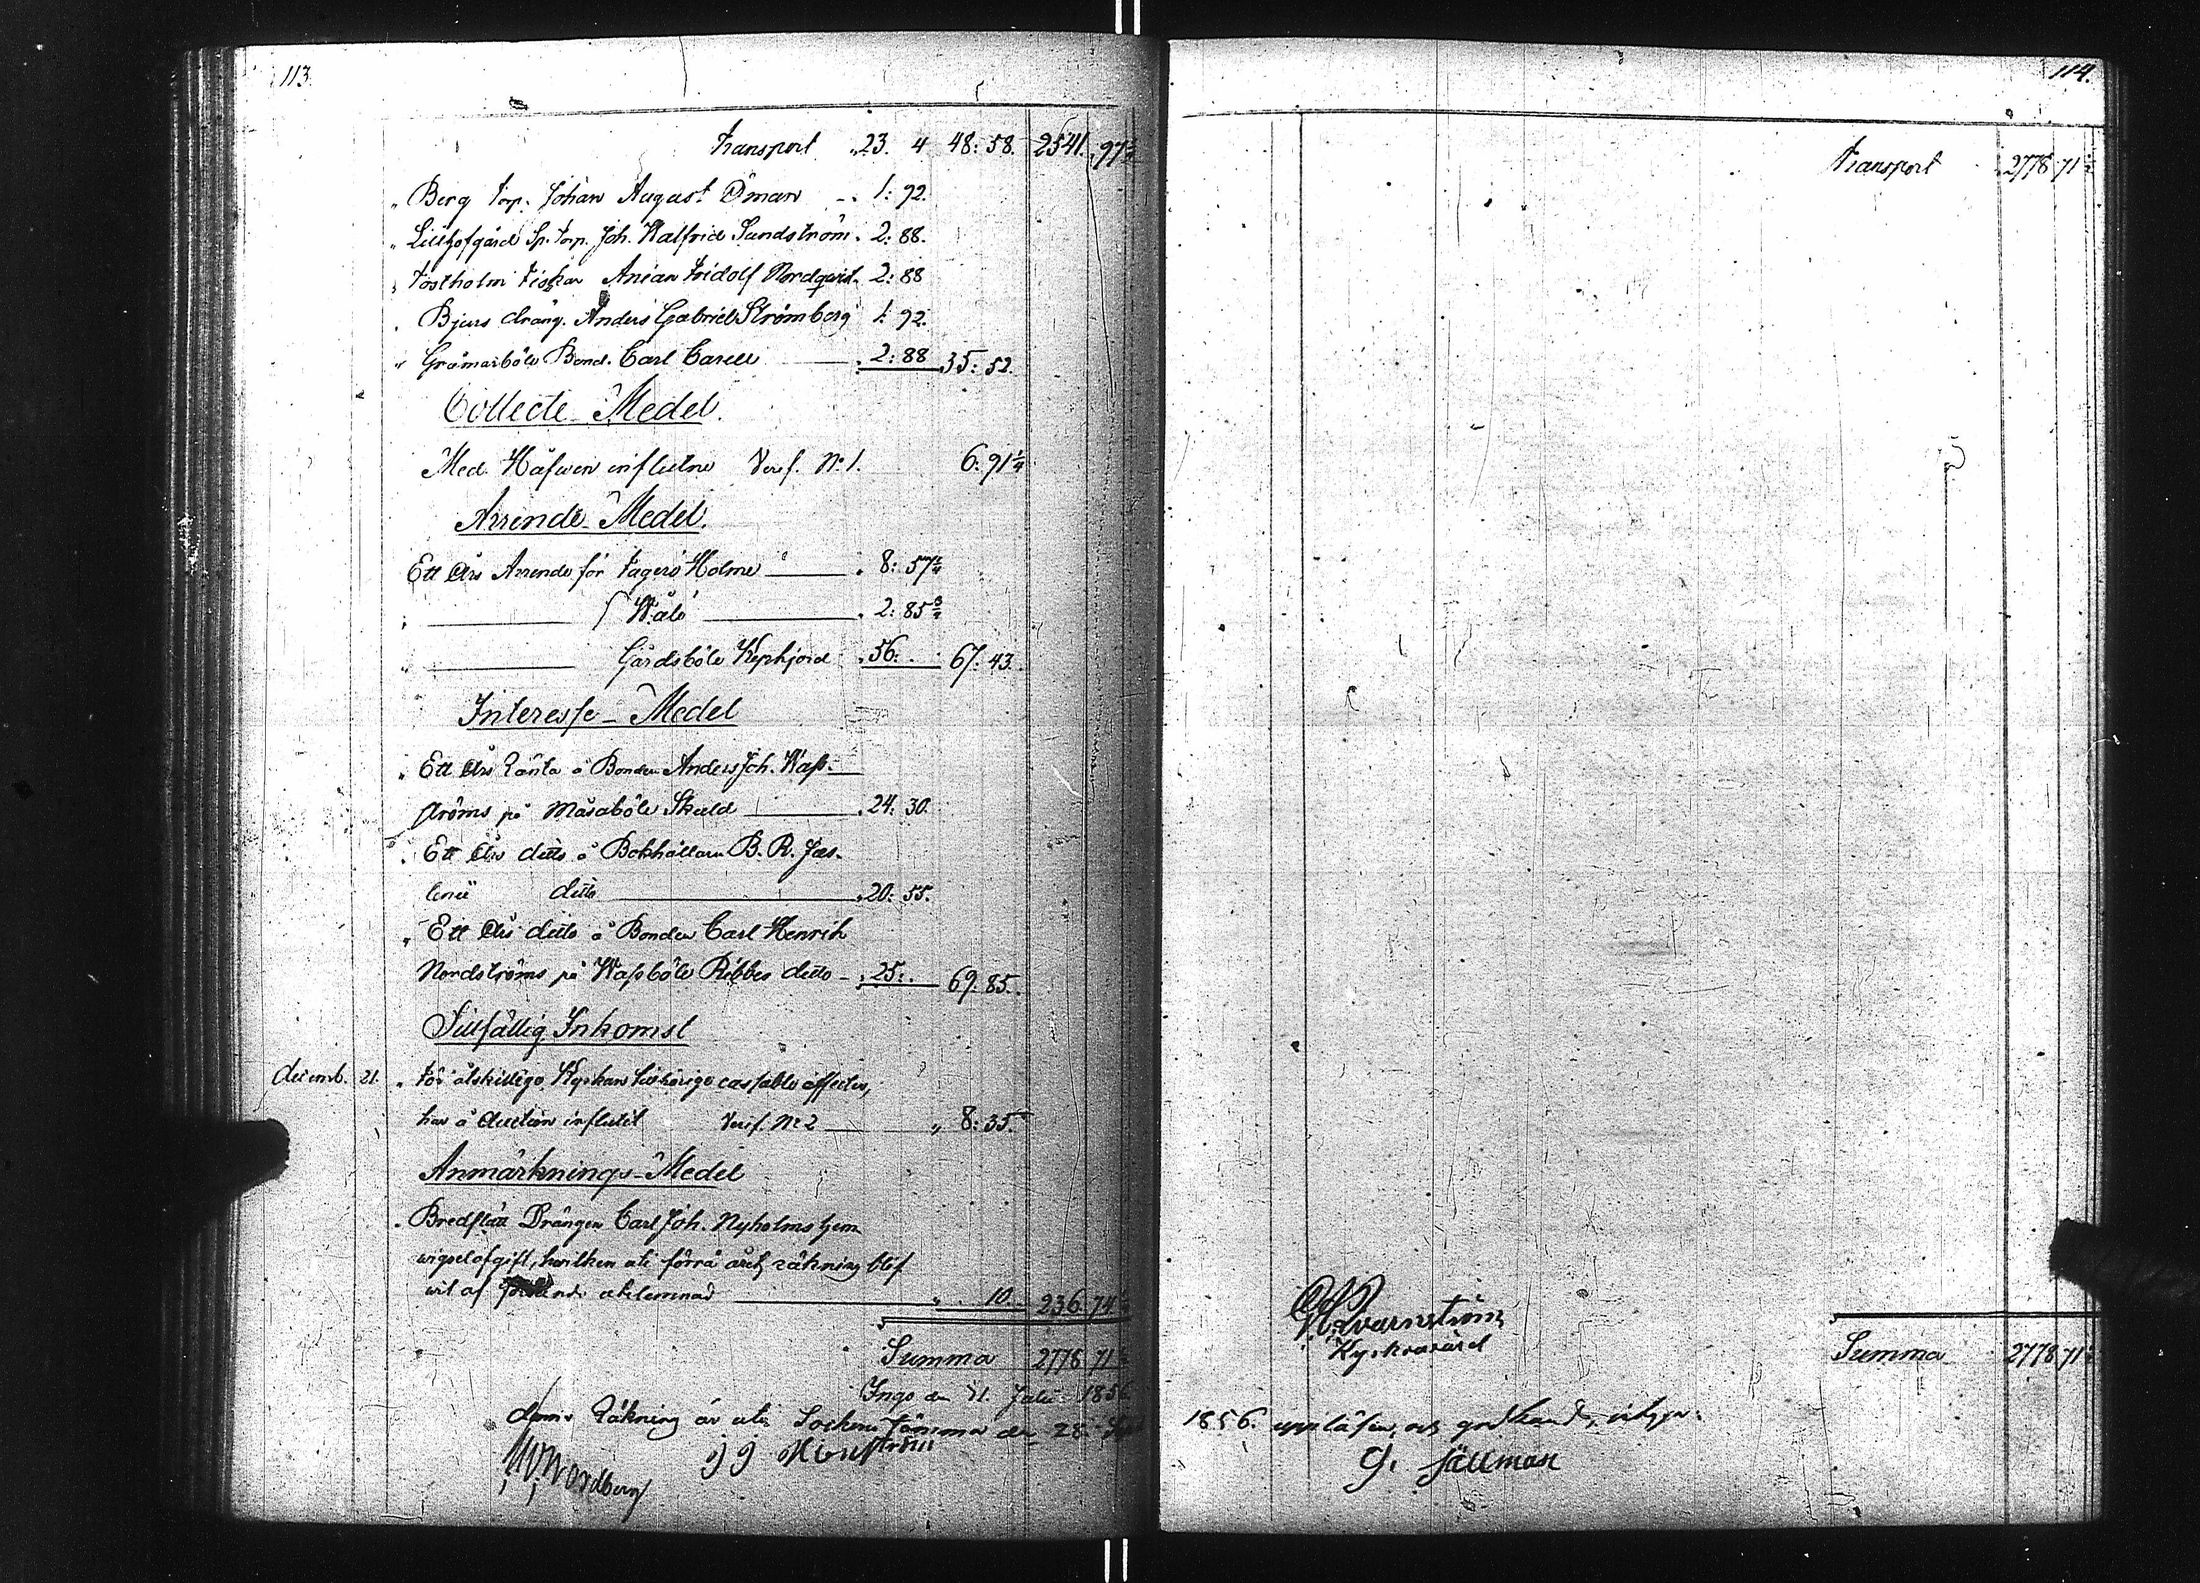 113.
Transport „ 23. 4 48: 58. 2541. 97½
„ Berg torp. Johan August Öman - . 1: 92.
„ Lillhofgård Sp. torp. Joh. Walfrid Sundström . 2: 88.
„ Tostholm Fiskar Anian Fridolf Nordqvist . 2: 88
„ Bjurs dräng. Anders Gabriel Strömberg 1: 92.
„ Gråmarböle Bond. Carl Carell . 2: 88 35: 52.
Collecte-Medel.
Med Håfwen influtne Verif. No 1. 6: 91¼
Arrende-Medel.
Ett Års Arrende för Fagerö Holme . 8: 57¼
„ Wålö . 2: 85¾
„ Gårdsböle Kyrkjord . 56: . 67: 43.
Interesse-Medel
„ Ett Års Ränta å Bonden Anders Joh. Wass-
ströms på Måsaböle Skuld . 24: 30.
„ Ett Års ditto å Bokhållaren B. R. Jus-
lenii ditto „ 20: 55.
„ Ett Års ditto å Bonden Carl Henrik
Nordströms på Wassböle Ribbes ditto - . 25: . 69: 85.
Tillfällig Inkomst
Decemb. 21. „ För åtskillige Kyrkan tillhörige cassable effecter,
har å Auction influtit Verif. No 2 „ 8: 35.
Anmärknings-Medel
„ Bredslätt Drängen Carl Joh. Nyholms hem
wigselafgift, hwilken uti förra årets räkning blif
wit af uteslemnad „ . 10. 236. 74¼
Summa 2778 71
Ingo den 21. Juli 1856
Denna Räkning är uti Sockne Stämma den 28. Sept
J J Mörtström
Nordberg
114.
Transport . 2778 71
Qvarnström
Kyrkovärd
Summa 2778 71
1856. uppläsen, och godkänd, intygar.
G. Hällman